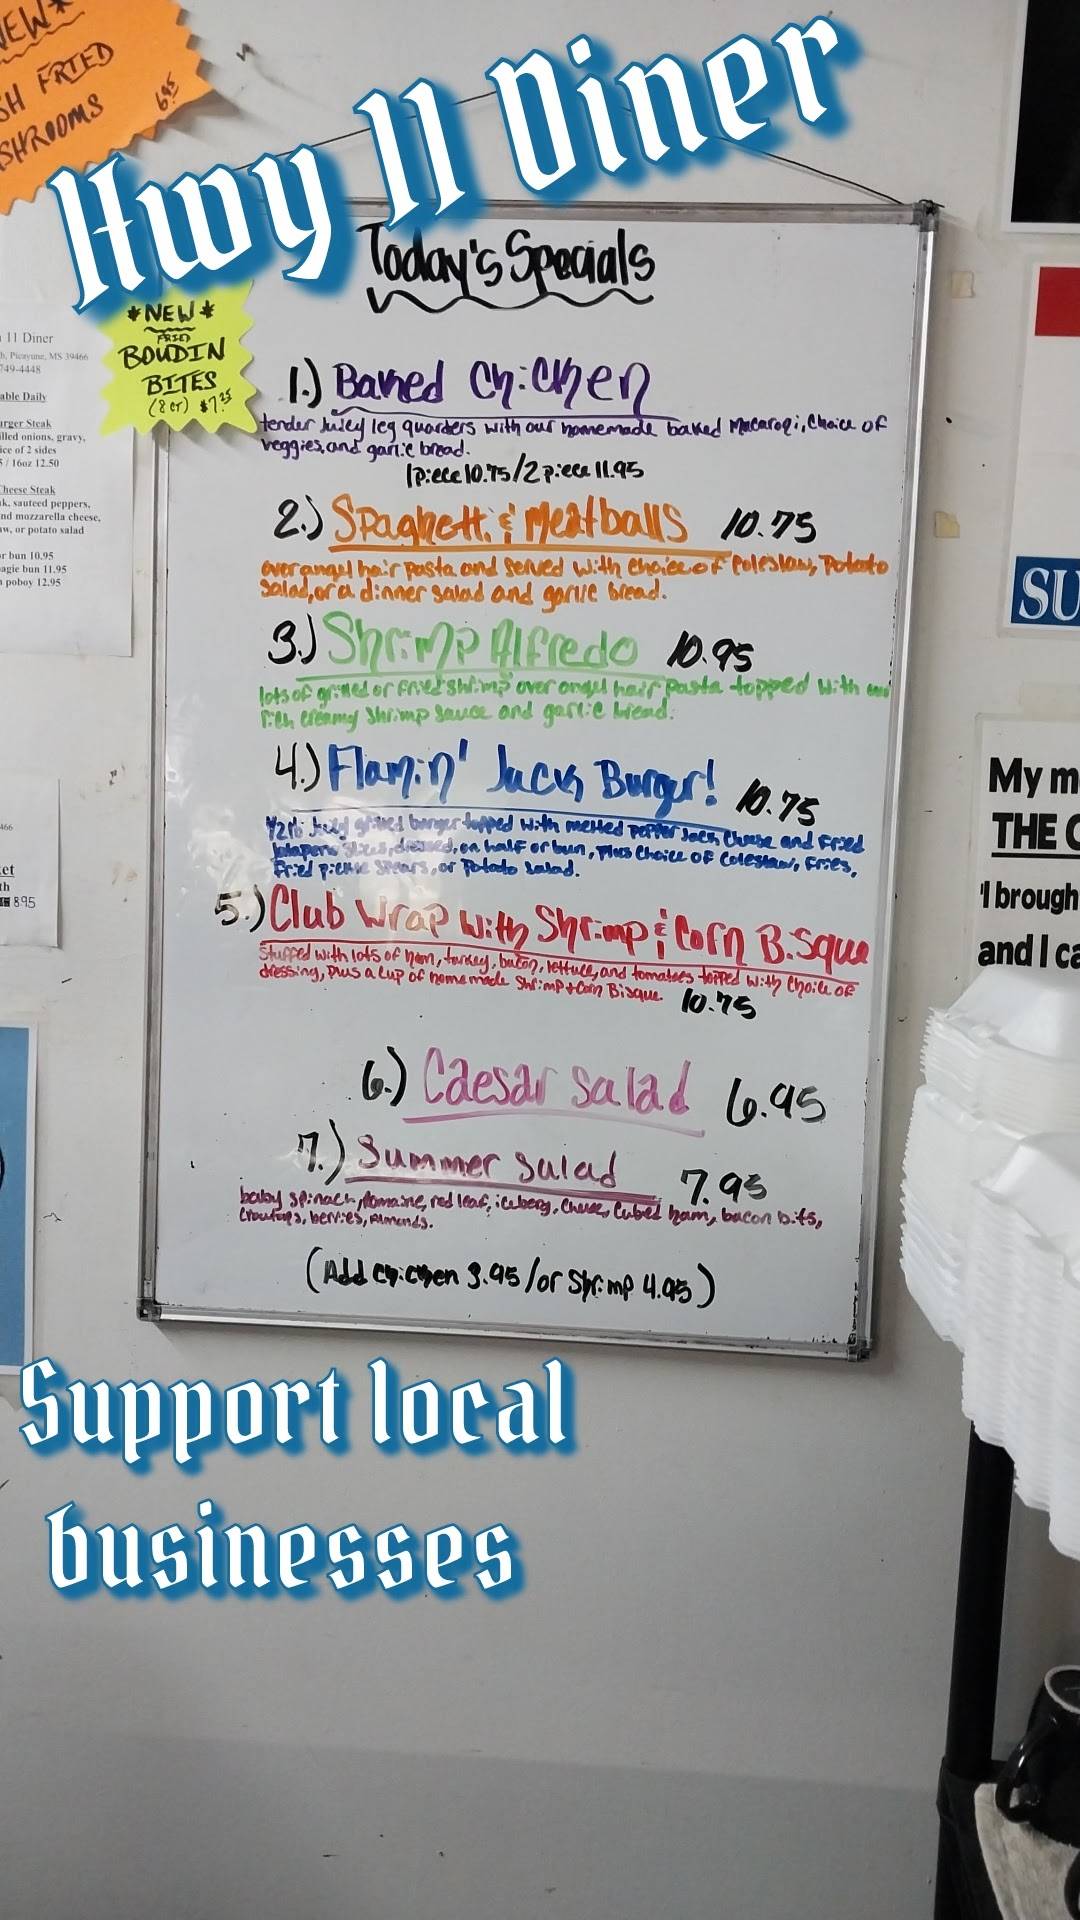 NEW*
SH FRIED
SHROOMS
6.95
Hwy 11 Diner
Today's Specials
*NEW*
FRIED
BOUDIN
BITES
(8 CT) $7.25
11 Diner
Picayune, MS 39466
749-4448
able Daily
urger Steak
illed onions, gravy,
ice of 2 sides
/ 16oz 12.50
Cheese Steak
ak, sauteed peppers,
nd mozzarella cheese,
aw, or potato salad
r bun 10.95
agie bun 11.95
poboy 12.95
1.) Baked Chicken
tender juicy leg quarters with our homemade baked macaroni, choice of
veggies, and garlic bread.
1 piece 10.75/2 piece 11.95
2.) Spaghetti & Meatballs 10.75
over angel hair pasta and served with choice of Coleslaw, Potato
Salad, or a dinner salad and garlic bread.
3.) Shrimp Alfredo 10.95
lots of grilled or fried shrimp over angel hair pasta topped with our
rich creamy shrimp sauce and garlic bread.
4.) Flamin' Jack Burger! 10.75
1/2 lb juicy grilled burger topped with melted pepper jack cheese and fried
jalapeno slices, dressed, on half or bun, plus choice of Coleslaw, Fries,
Fried pickle spears, or Potato Salad.
5.) Club Wrap with Shrimp & Corn Bisque
Stuffed with lots of ham, turkey, bacon, lettuce, and tomatoes topped with choice of
dressing, plus a cup of homemade Shrimp + Corn Bisque. 10.75
6.) Caesar Salad 6.95
7.) Summer Salad 7.95
baby spinach, Romaine, red leaf, iceberg, cheese, cubed ham, bacon bits,
croutons, berries, Almonds.
(Add chicken 3.95/or Shrimp 4.95)
466
et
th
8.95
SU
My m
THE
'I brough
and I ca
Support local
businesses